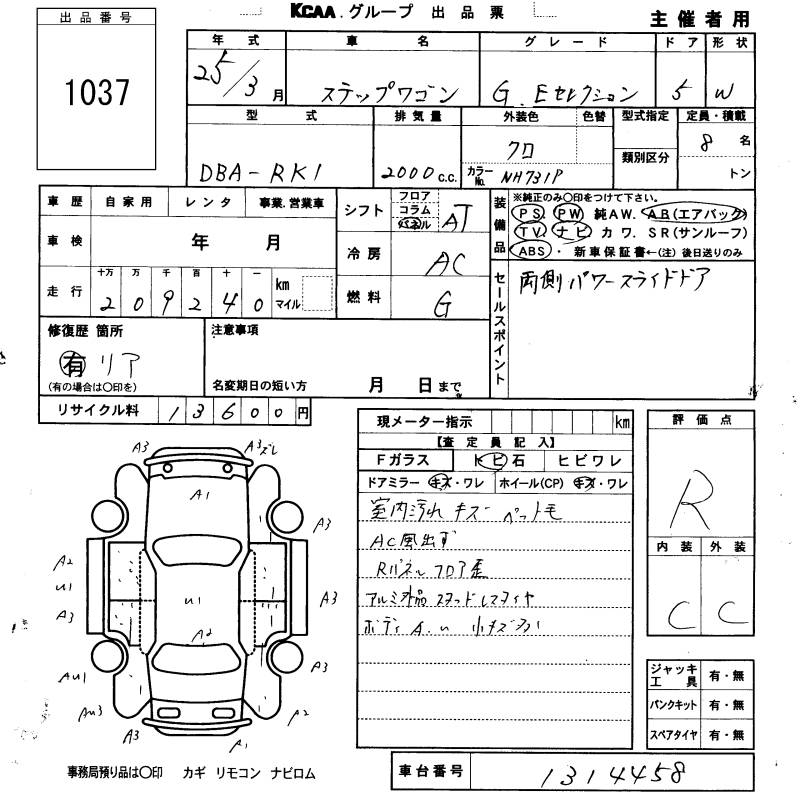 KCAA.グループ 出品票
主催者用
出品番号
1037
年式 車名 グレード ドア 形状
25/3月 ステップワゴン G.Eセレクション 5 W
型式 排気量 外装色 色替 型式指定 定員・積載
DBA-RK1 2000c.c. クロ 類別区分 8名
カラーNo. NH731P トン
車歴 自家用 レンタ 事業.営業車
車検 年 月
走行 十万 万 千 百 十 一 km マイル
2 0 9 2 4 0
シフト フロア コラム パネル AT
冷房 AC
燃料 G
装備品
※純正のみ○印をつけて下さい。
PS. PW 純AW. AB(エアバック)
TV. ナビ カワ. SR(サンルーフ)
ABS・新車保証書←(注)後日送りのみ
セールスポイント
両側パワースライドドア
修復歴 箇所
有 リア
(有の場合は○印を)
注意事項
名変期日の短い方 月 日まで
リサイクル料 13600円
現メーター指示 km
【査定員記入】
Fガラス トビ石 ヒビワレ
ドアミラー キズ・ワレ ホイール(CP) キズ・ワレ
室内汚れ キズー ペット毛
AC風出ず
Rパネル フロア歪
アルミ欠品 スタッドレスタイヤ
ボディA.U 小キズ
評価点
R
内装 外装
C C
ジャッキ工具 有・無
パンクキット 有・無
スペアタイヤ 有・無
A3 A3ズレ
A1
A3
A2
U1 U1 A3
A3 A2
AU1 A3
AU3 A2
A3 A1
事務局預り品は○印 カギ リモコン ナビロム
車台番号 1314458